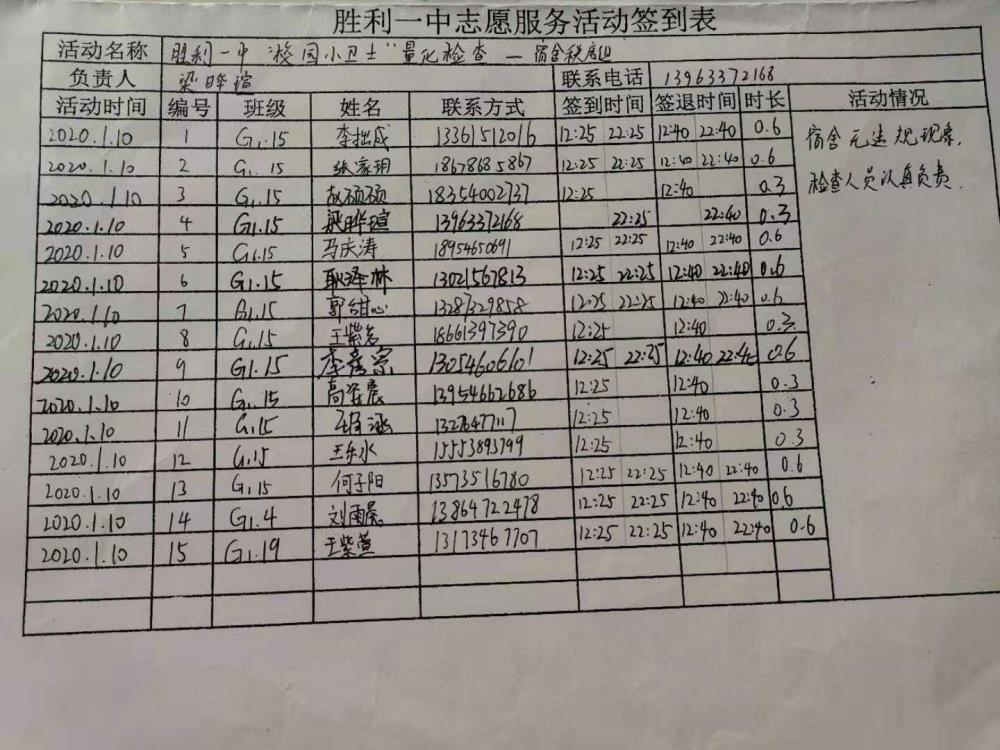 胜利一中志愿服务活动签到表
活动名称 胜利一中"校园小卫士"量化检查—宿舍秩序
负责人 梁晔瑄 联系电话 13963372168
活动时间 编号 班级 姓名 联系方式 签到时间 签退时间 时长 活动情况
2020.1.10 1 G1.15 李拙成 13361512016 12:25 22:25 12:40 22:40 0.6 宿舍无违规现象,
2020.1.10 2 G1.15 张家玥 18678685867 12:25 22:25 12:40 22:40 0.6 检查人员认真负责.
2020.1.10 3 G1.15 赵硕硕 18354002737 12:25 12:40 0.3
2020.1.10 4 G1.15 梁晔瑄 13963372168 22:25 22:40 0.3
2020.1.10 5 G1.15 马庆涛 18954650691 12:25 22:25 12:40 22:40 0.6
2020.1.10 6 G1.15 耿泽林 13021567813 12:25 22:25 12:40 22:40 0.6
2020.1.10 7 G1.15 郭甜心 13287329858 12:25 22:25 12:40 22:40 0.6
2020.1.10 8 G1.15 王紫茗 18661397390 12:25 12:40 0.3
2020.1.10 9 G1.15 李彦宗 13054606101 12:25 22:25 12:40 22:40 0.6
2020.1.10 10 G1.15 13954662686 12:25 12:40 0.3
2020.1.10 11 G1.15 12:25 12:40 0.3
2020.1.10 12 G1.15 王乐水 15553893799 12:25 12:40 0.3
2020.1.10 13 G1.15 何子阳 13573516780 12:25 22:25 12:40 22:40 0.6
2020.1.10 14 G1.4 刘雨晨 13864722478 12:25 22:25 12:40 22:40 0.6
2020.1.10 15 G1.19 王紫萱 13173467707 12:25 22:25 12:40 22:40 0.6